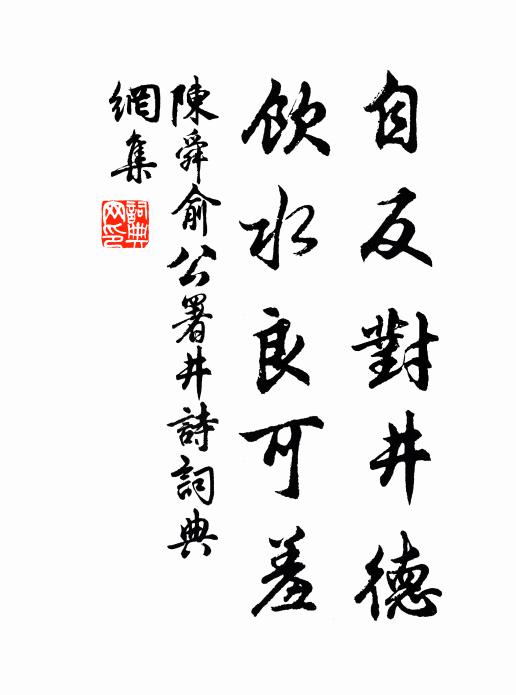 自反對井德
飲水良可羞
陳舜俞公署井詩詞典
網集
詞典網印